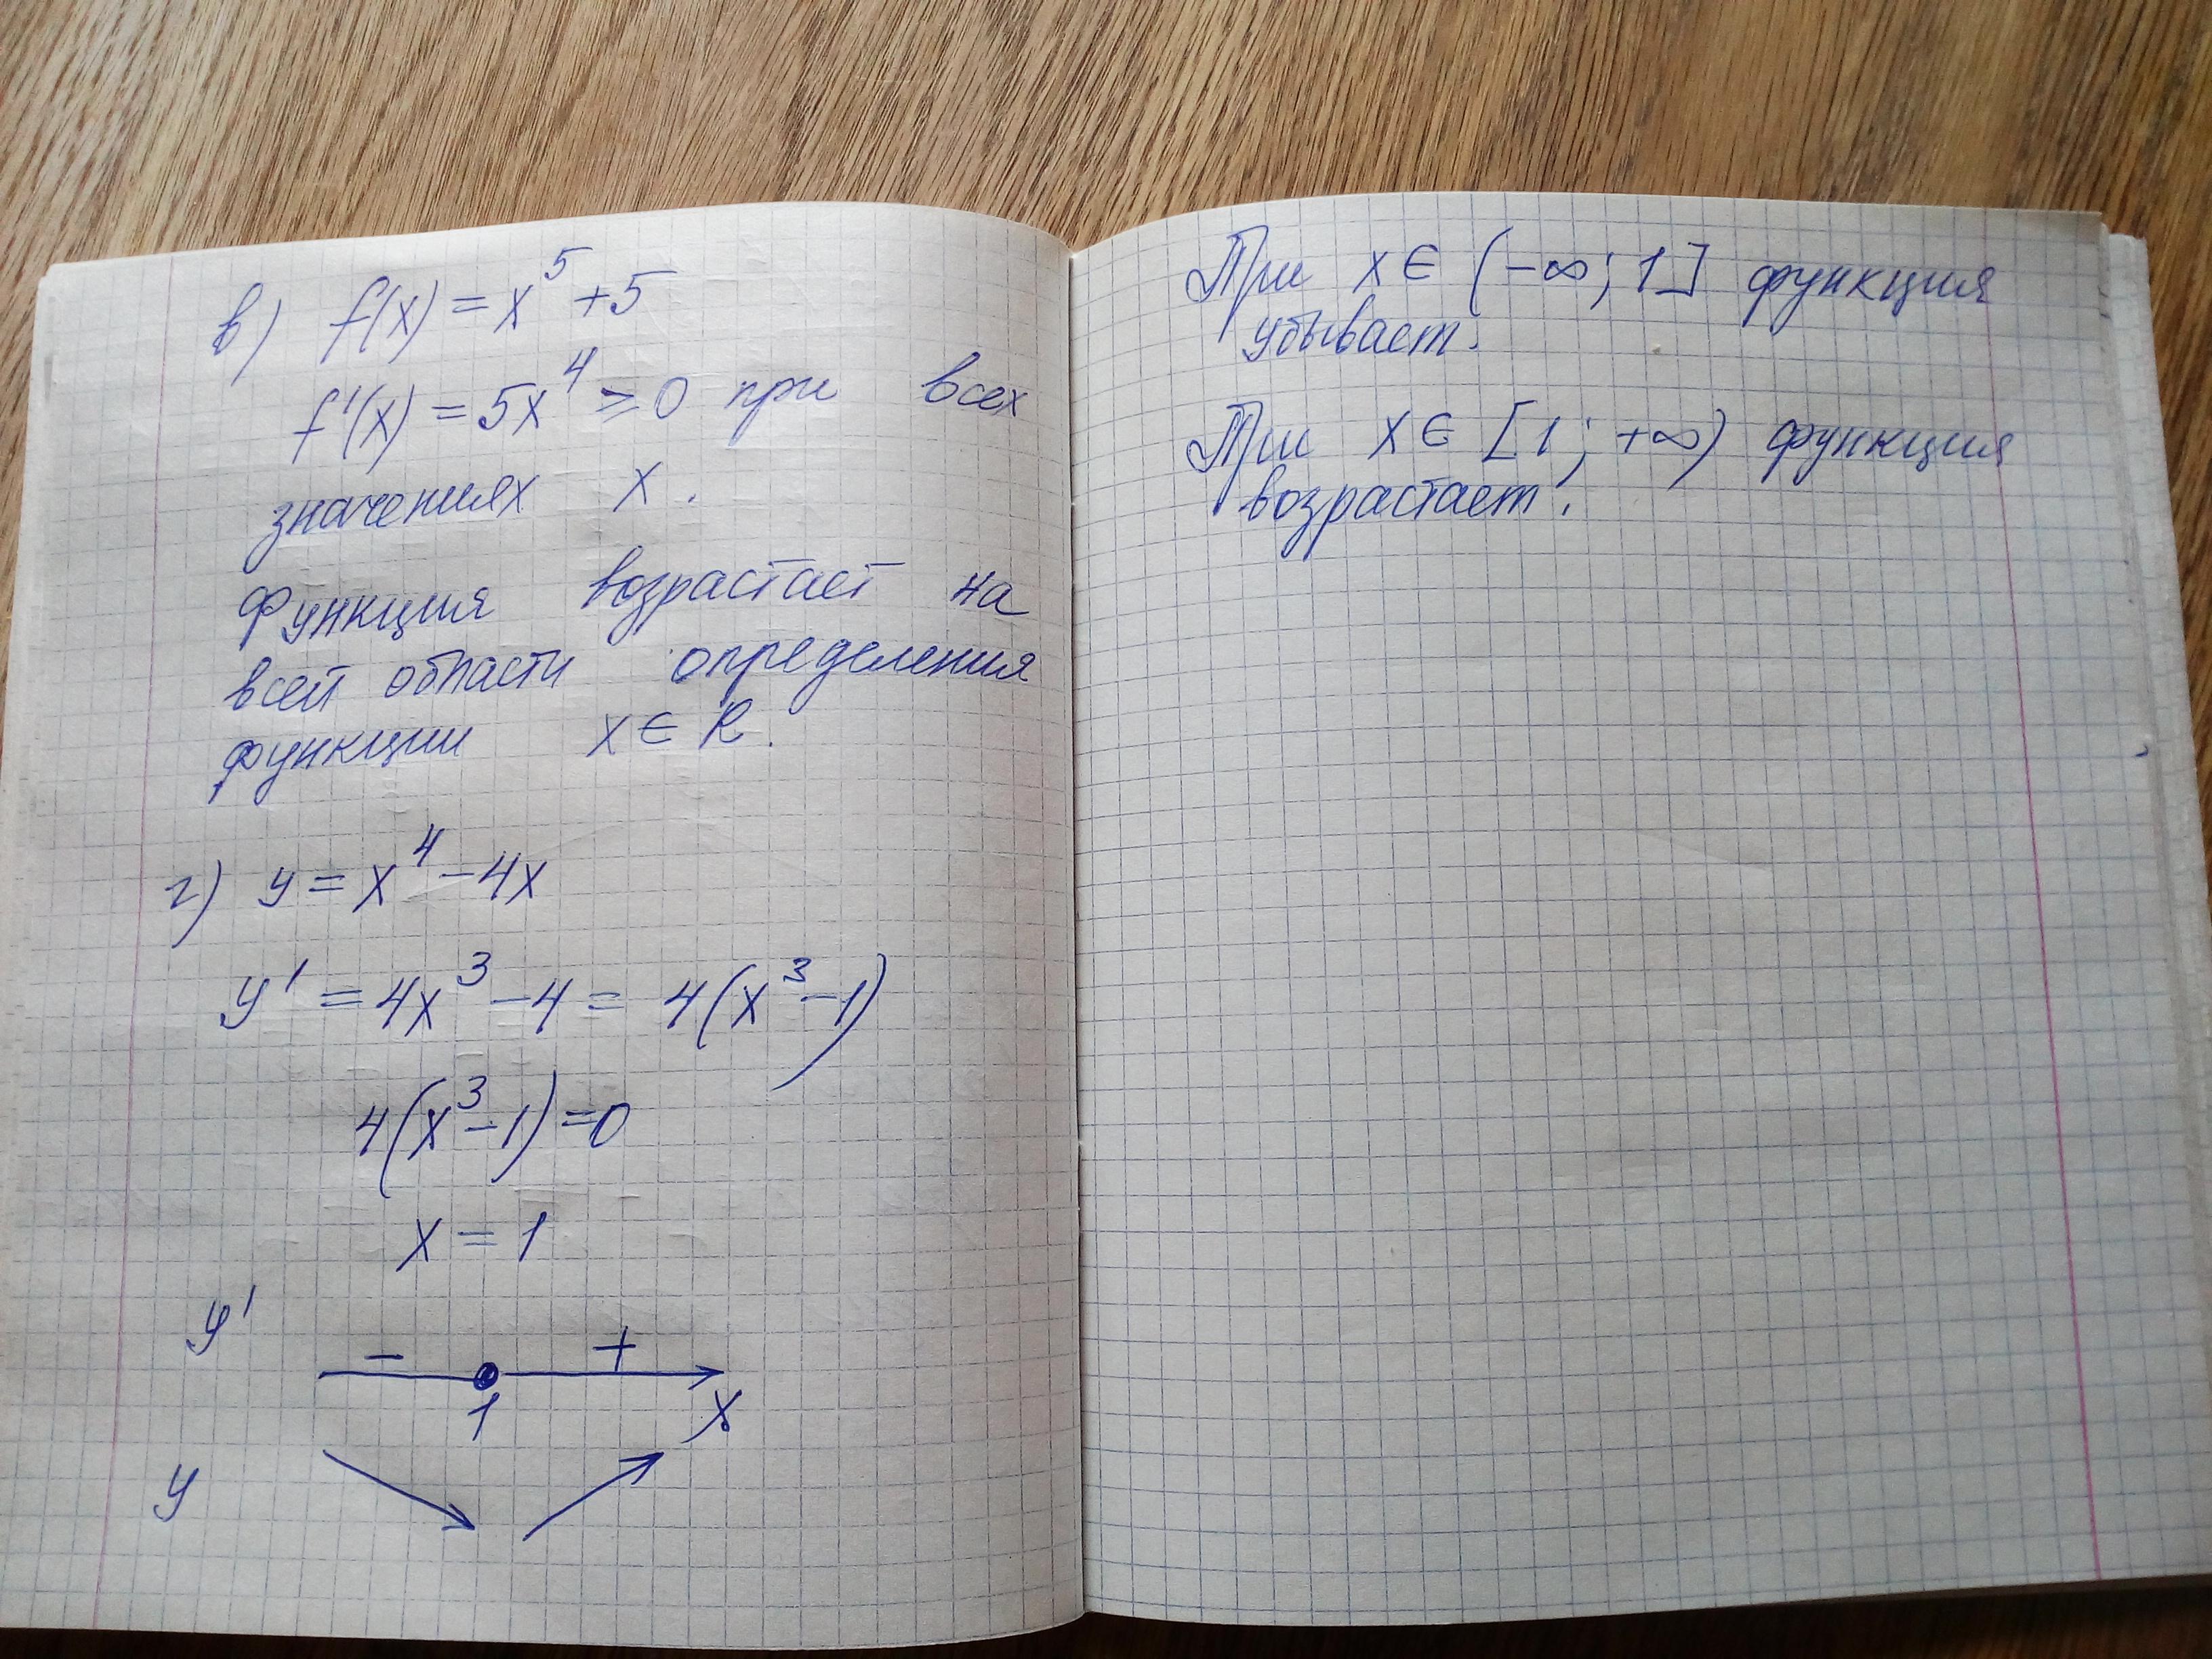 в) f(x) = x⁵ + 5
f'(x) = 5x⁴ ≥ 0 при всех
значениях x.
Функция возрастает на
всей области определения
функции x ∈ R.
г) y = x⁴ - 4x
y' = 4x³ - 4 = 4(x³ - 1)
4(x³ - 1) = 0
x = 1
y'
- +
1 x
y
При x ∈ (-∞; 1] функция
убывает.
При x ∈ [1; +∞) функция
возрастает.